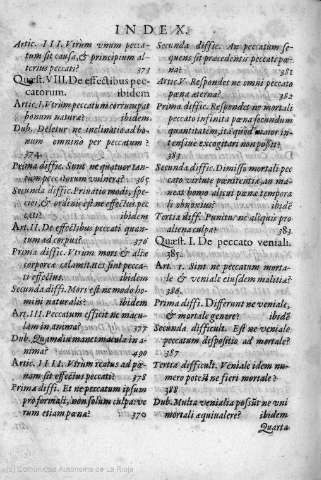 INDEX.
Artic. III. Vtrum vnum pecca-
tum sit causa, & principium al-
terius peccati? 373
Quæst. VIII. De effectibus pec-
catorum. ibidem
Artic. I. Vtrum peccatum corrumpat
bonum naturæ? ibidem
Dub. Deletur ne inclinatio ad bo-
num omnino per peccatum?
374.
Prima diffic. Sunt ne quatuor tan-
tum peccatorum vulnera? 365
Secunda diffic. Priuatio modi, spe-
ciei, & ordinis est ne effectus pec-
cati? ibidem
Art. II. De effectibus peccati quan-
tum ad corpus? 376
Prima diffic. Vtrum mors & aliæ
corporeæ calamitates sint pecca-
ti effectus? ibidem
Secunda diffi. Mors est ne modo ho-
mini naturalis? ibidem
Art. III. Peccatum efficit ne macu-
lam in anima? 377
Dub. Quamdiu manet macula in a-
nima? 490
Artic. IIII. Vtrum reatus ad pœ-
nam sit effectus peccati? 378
Prima diffi. Et ne peccatum ipsum
pro formali, non solum culpæ ve-
rum etiam pœna? 370
Secunda diffic. An peccatum se-
quens sit præcedentis peccati pæ-
na? 381
Artic. V. Respondet ne omni peccato
pœna æterna? 382
Prima diffic. Respondet ne mortali
peccato infinita pœna secundum
quantitatem, ita quod maior in-
tensiue excogitari non possit?
383
Secunda diffic. Dimisso mortali pec-
cato
neat homo alicui pœnæ tempora
li obnoxius? ibidẽ
Tertia diff. Punitur ne aliquis pro
aliena culpa? 383.
Quæst. I. De peccato veniali.
385.
Art. 1. Sint ne peccatum morta-
le & veniale eiusdem malitiæ?
386.
Prima diffi. Differunt ne veniale,
& mortale genere? ibidẽ
Secunda difficult. Est ne veniale
peccatum dispositio ad mortale?
387
Tertia difficult. Veniale idem nu-
mero potest ne fieri mortale?
388
Dub. Multa venialia possũt ne vni
mortali æquiualere? ibidem
Quarta
(c) Comunidad Autónoma de La Rioja